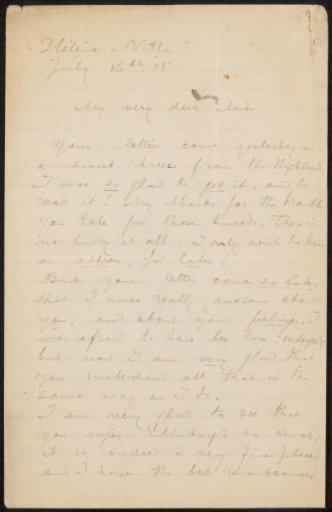 July 16th 05
My very dear
Your letter came yesterday as
a sweet breeze from the Highland
I was so glad to get it, and to
read it! My thanks for the trouble
you take for those There is
no hurry at all: I only wish to have
an address, for later!
But your letter came so late,
that I was really anxious about
you, and about your feelings. I
was afraid to have been too
but now I am very glad that
you understand all that in the
same way as I do.
I am very glad to see that
you enjoy Edinburgh so much,
it is indeed a very fine place,
and I have the best remembrances